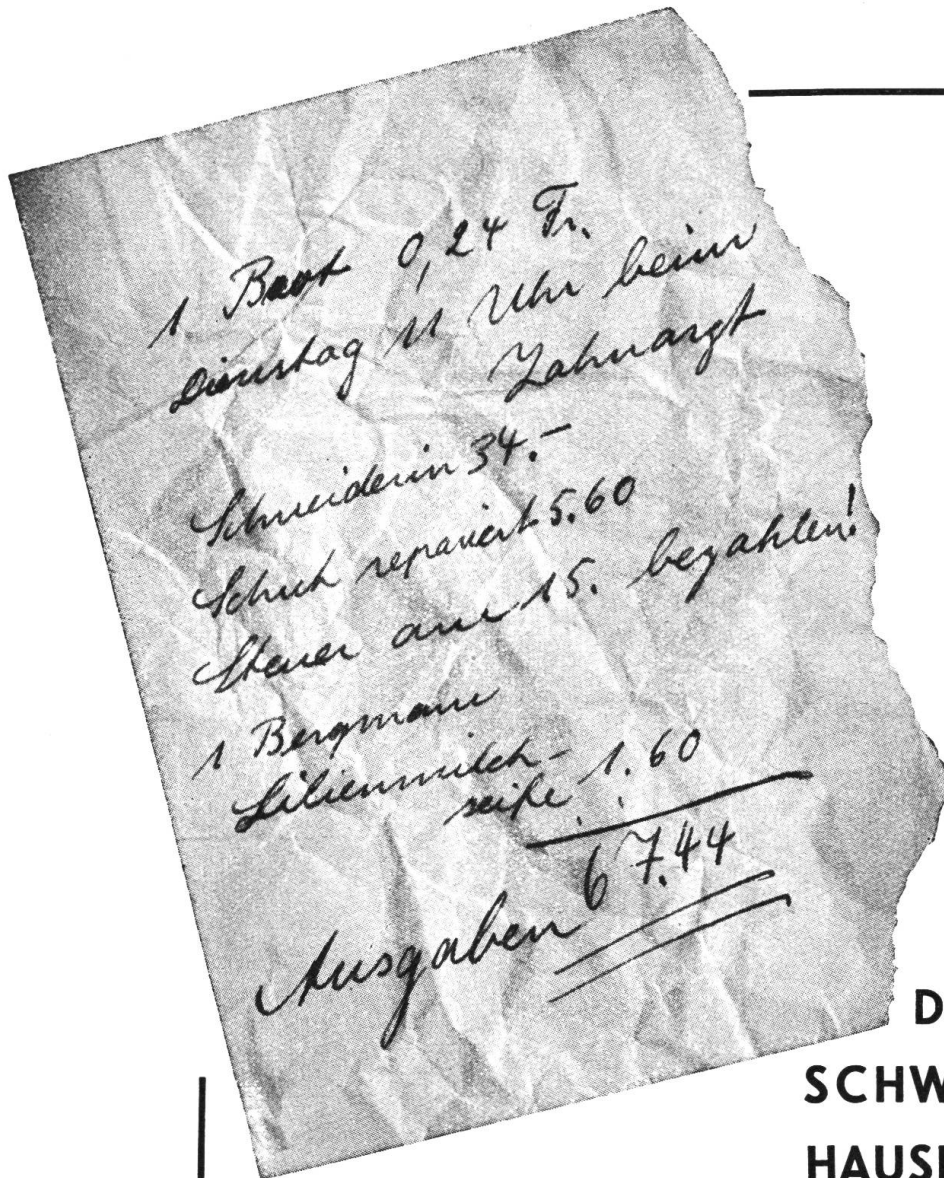 1 Brot 0,24 Fr.
Dienstag 11 Uhr beim
Zahnarzt
Schneiderin 34.–
Schuh repariert 5.60
Steuer am 15. bezahlen!
1 Bergmann
Lilienmilch-
seife 1.60
Ausgaben 67.44
D
SCHW
HAUS